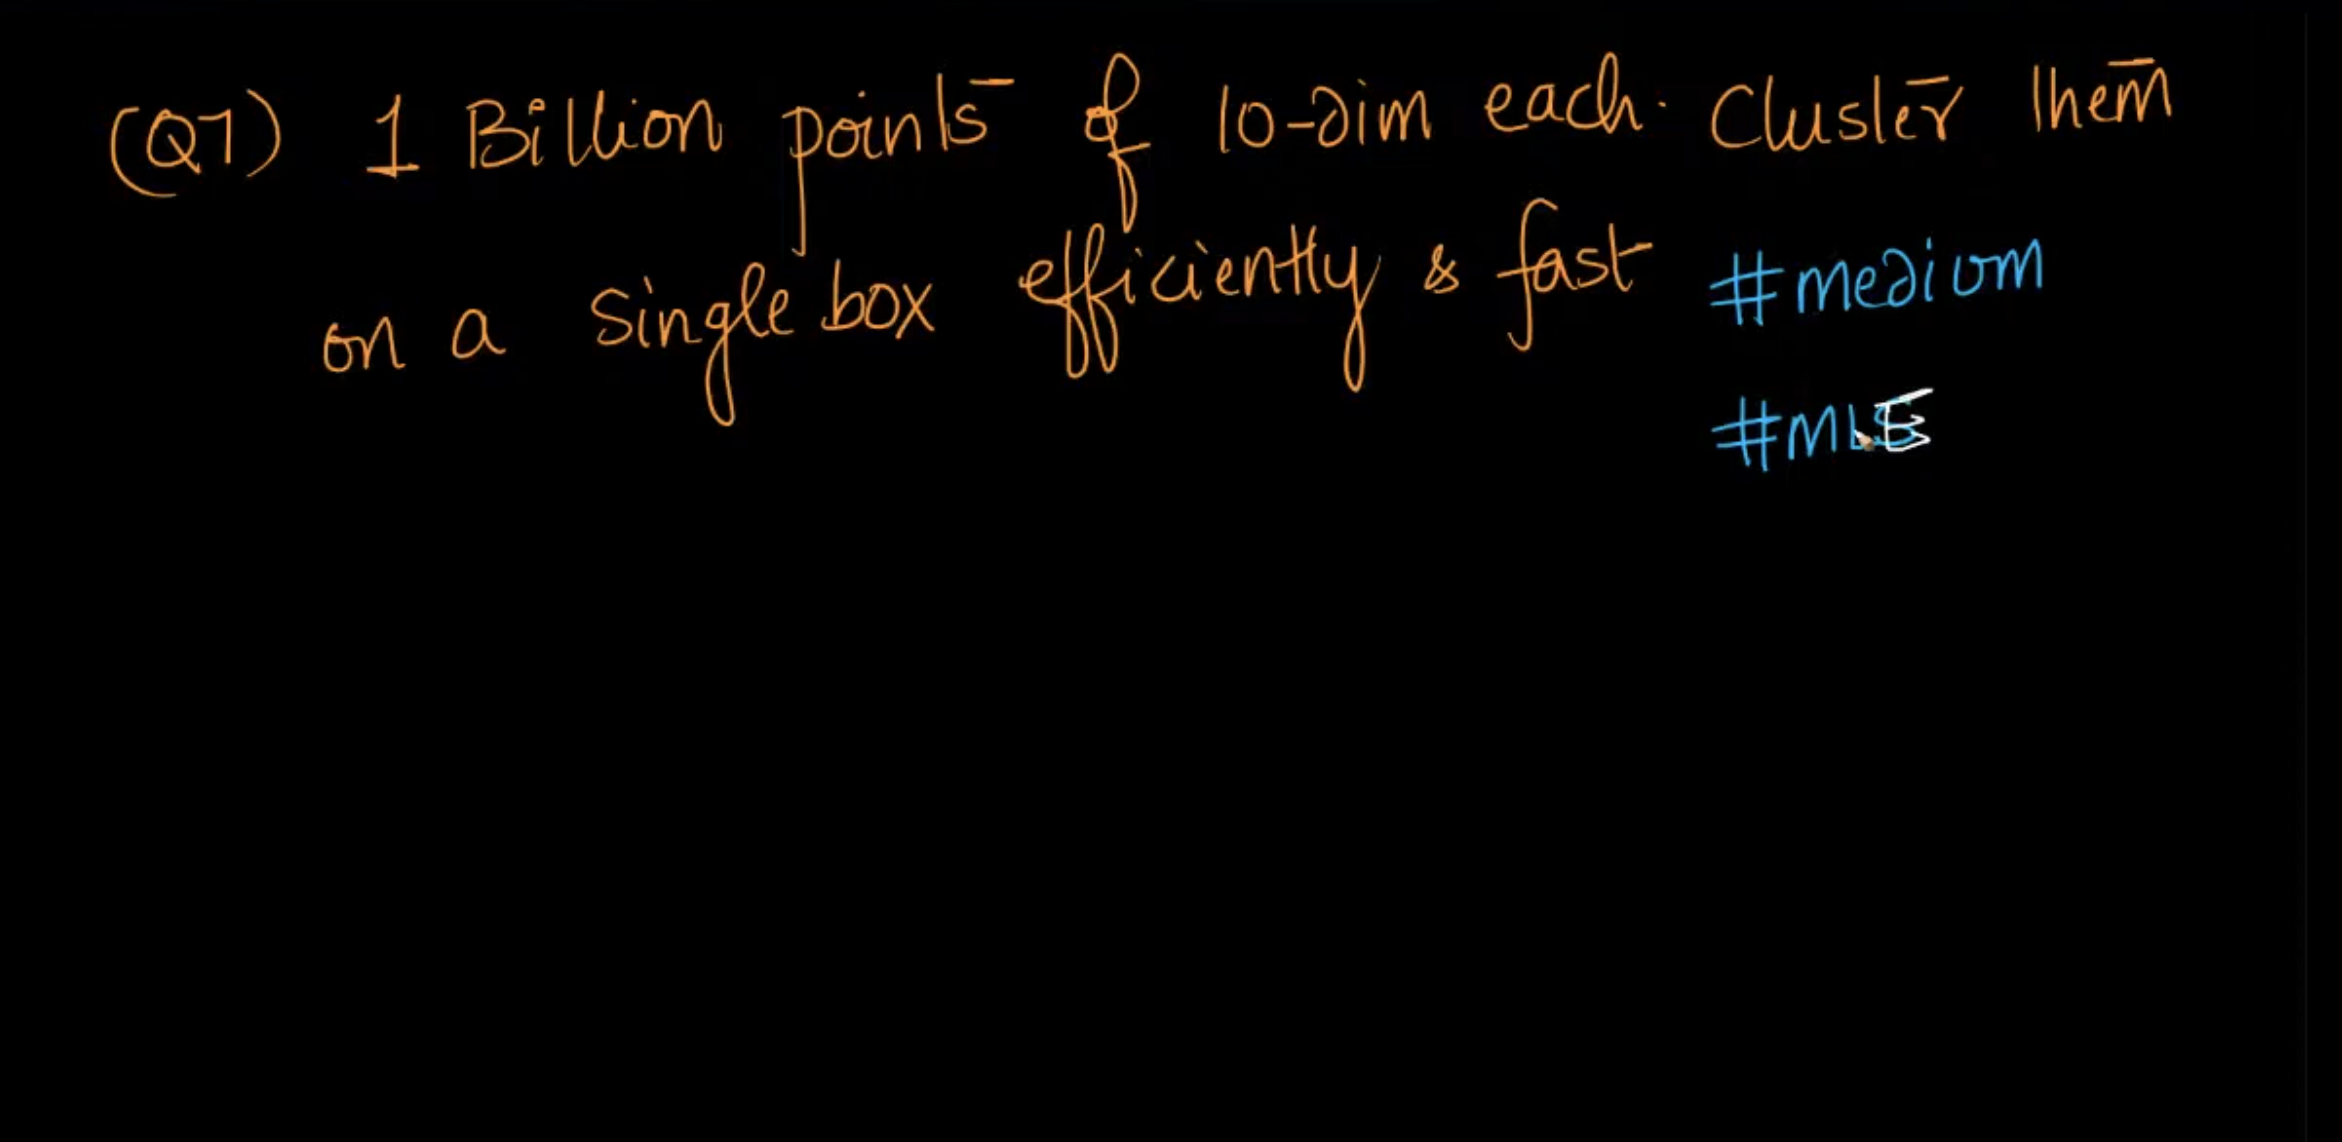 (Q7) 1 Billion points of 10-dim each. Cluster them
on a single box efficiently & fast #medium
#MLE